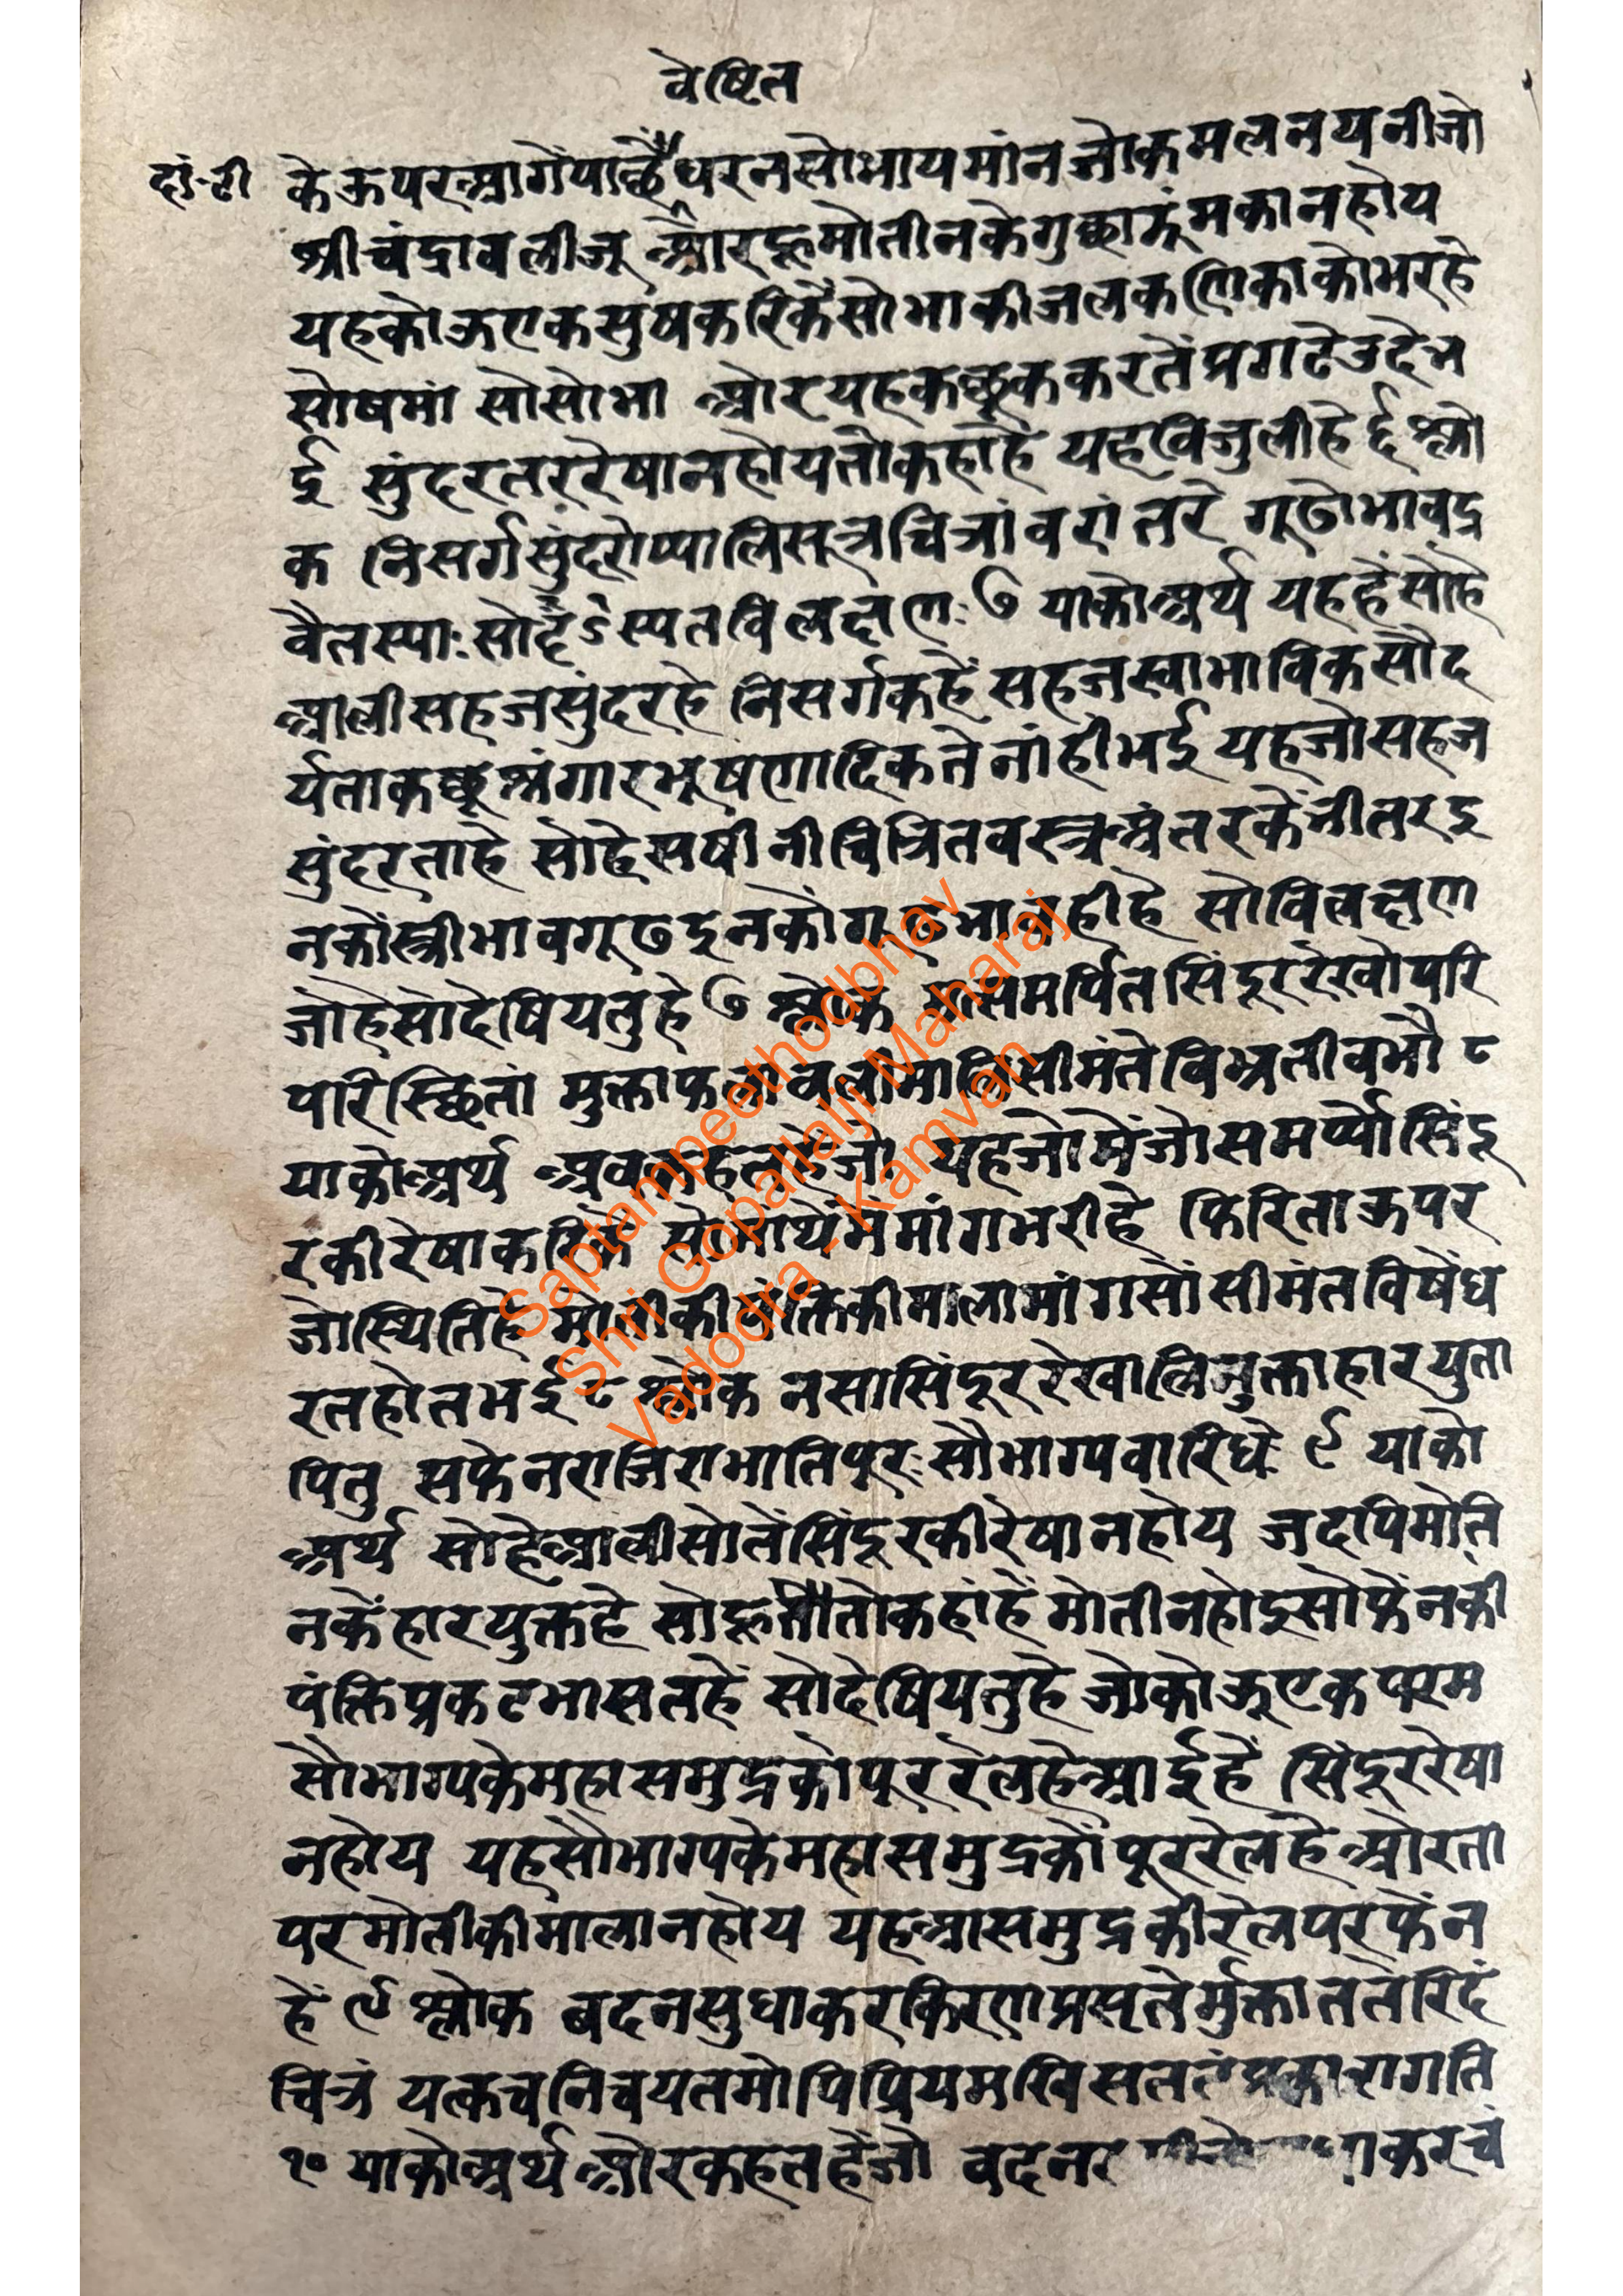 वेष्टित
दां.टी
केऊपरआगेंपाछैंधरनसोभायमांनजोकमलनयनीजो
श्रीचंद्रावलीजू औरहूमोतीनकेगुछाझूंमकानहोय
यहकोऊएकसुषकरिकैंसोभाकीजलकणिकाकोभरहे
सोषमां सोसोभा ओरयहकछूककरतेंप्रगटेउदेभ
ई सुंदरतररेषानहोयतोकहाहै यहविजुलीहेई श्लो
क निसर्गसुंदरोप्यालिसूत्रचित्रांवरांतरे गूढोभावद्र
वैतस्याःसोदृंऽस्पतविलक्षणः ७ याकोअर्थ यहहेंसोहे
आलीसहजसुंदरहे निसर्गकहें सहजस्वाभाविकसौंद
र्यताकछूश्रंगारभूषणादिकतेनांहींभई यहजोसहज
सुंदरताहे सोहेसषीनीचित्रितवस्त्रअंतरकेंनीतरइ
नकोंस्त्रीभावगूढइनकोंगूढभावहीहै सोविलक्षण
जोहैसोदेषियतुहे ७ श्लोक मत्समर्पितसिंदूररेखोपरि
परिस्छितां मुक्ताफलावलीमालिसीमंतेविभ्रतीवभौ ८
याकोअर्थ अवकहतहेंजो यहजोमेंजोसमर्प्योसिंदू
रकीरेषाकरिकें सोमाथेंमेंमांगभरीहे फिरिताऊपर
जोस्थितिहे मोतीकीपंक्तिकीमालामांगसोंसीमंतविषेंध
रतहोतभई ८ श्लोक नसासिंदूररेखालिमुक्ताहारयुता
पितु सफेनराजिराभातिपूरःसौभाग्यवारिधेः ९ याको
अर्थ सोहेआलीसोतेंसिंदूरकीरेषानहोय जदपिमोति
नकेंहारयुक्तहे सोहूतौतोकहांहें मोतीनहोइसोफेंनकी
पंक्तिप्रकटभासतहें सोदेषियतुहै जोकोऊएकपरम
सौभाग्यकेमहासमुद्रकोपूररेलहेआईहें सिंदूररेषा
नहोय यहसौभाग्यकेमहासमुद्रकोंपूररेलहै ओरता
परमोतीकीमालानहोय यहआसमुद्रकीरेलपरफेंन
हें ९ श्लोक बदनसुधाकरकिरणप्रसृतेर्मुक्तातेतेरिदं
चित्रं यत्कचनिचयतमोपिप्रियमखिसतलं
१० याकोअर्थ औरकहतहेंजो वदन